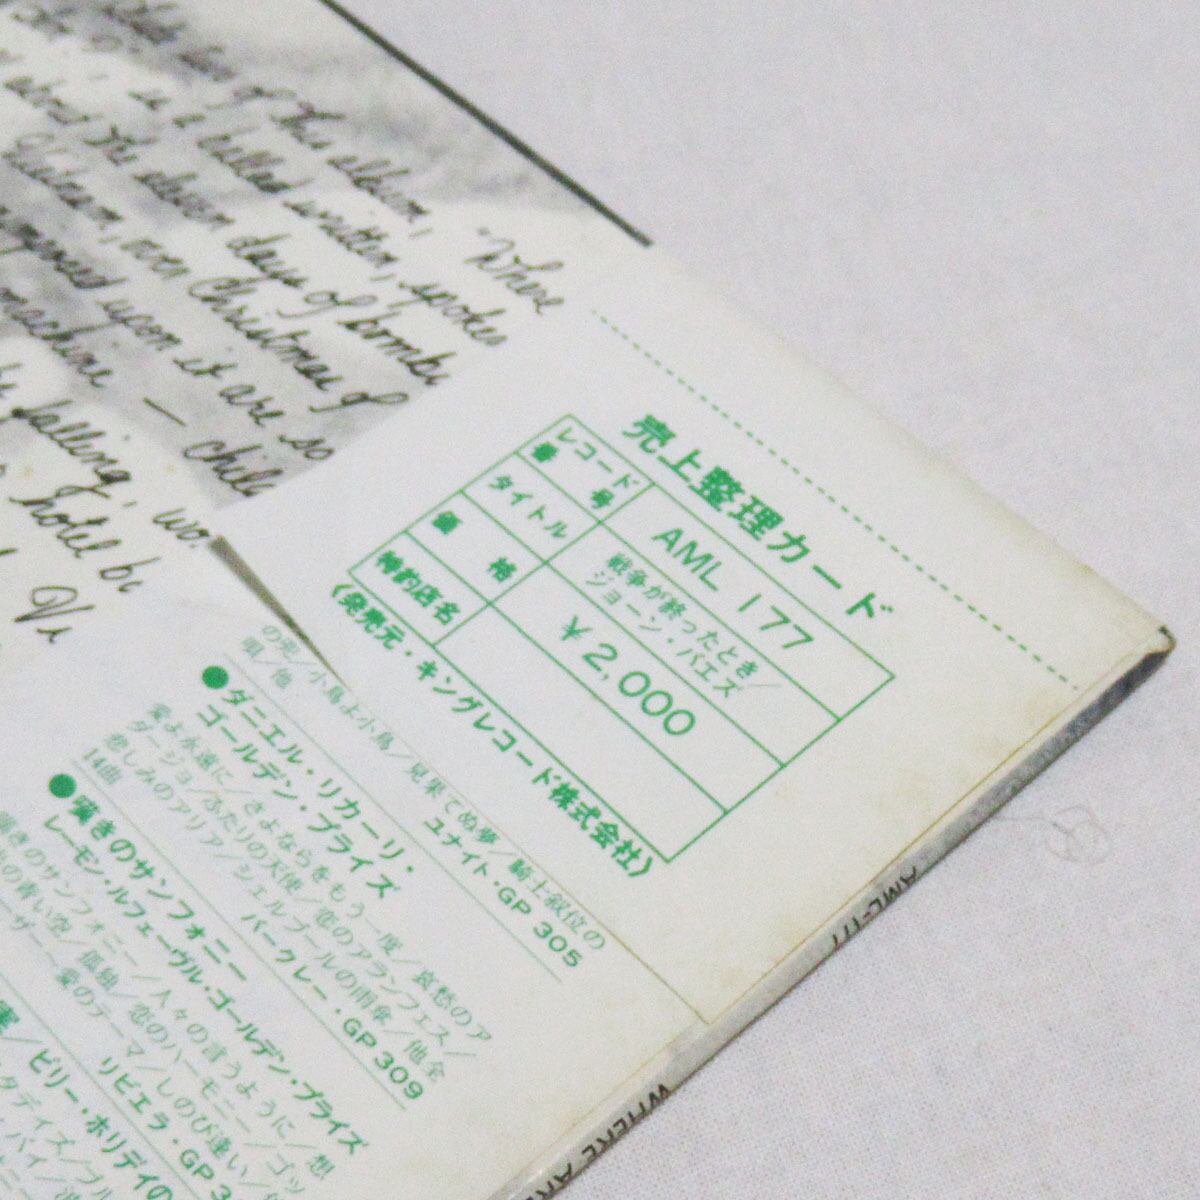 this album, "Where
is a ballad written, spoken
about the eleven days of bombi
even Christmas of
upon it are so
machine — chill
falling, wo
hotel be
Vi
売上整理カード
レコード番号 AML 177
タイトル 戦争が終ったとき/ジョーン・バエズ
価格 ¥2,000
特約店名
(発売元・キングレコード株式会社)
の兜/小鳥よ小鳥/見果てぬ夢/騎士叙位の
唄/他
ユナイト・GP 305
●ダニエル・リカーリ・
ゴールデン・プライズ
愛よ永遠に/さよならをもう一度/哀愁のア
ダージョ/ふたりの天使/恋のアランフェス/
悲しみのアリア/シェルブールの雨傘/他全
14曲
バークレー・GP 309
●嘆きのサンフォニー
レーモン・ルフェーヴル・ゴールデン・プライズ
嘆きのサンフォニー/人々の言うように/想
の青い空/孤独/恋のハーモニー/ゴッ
ーザー〜愛のテーマ/しのび逢い/
リビエラ・GP 3
/ビリー・ホリデイの
AML-177
WHERE AR